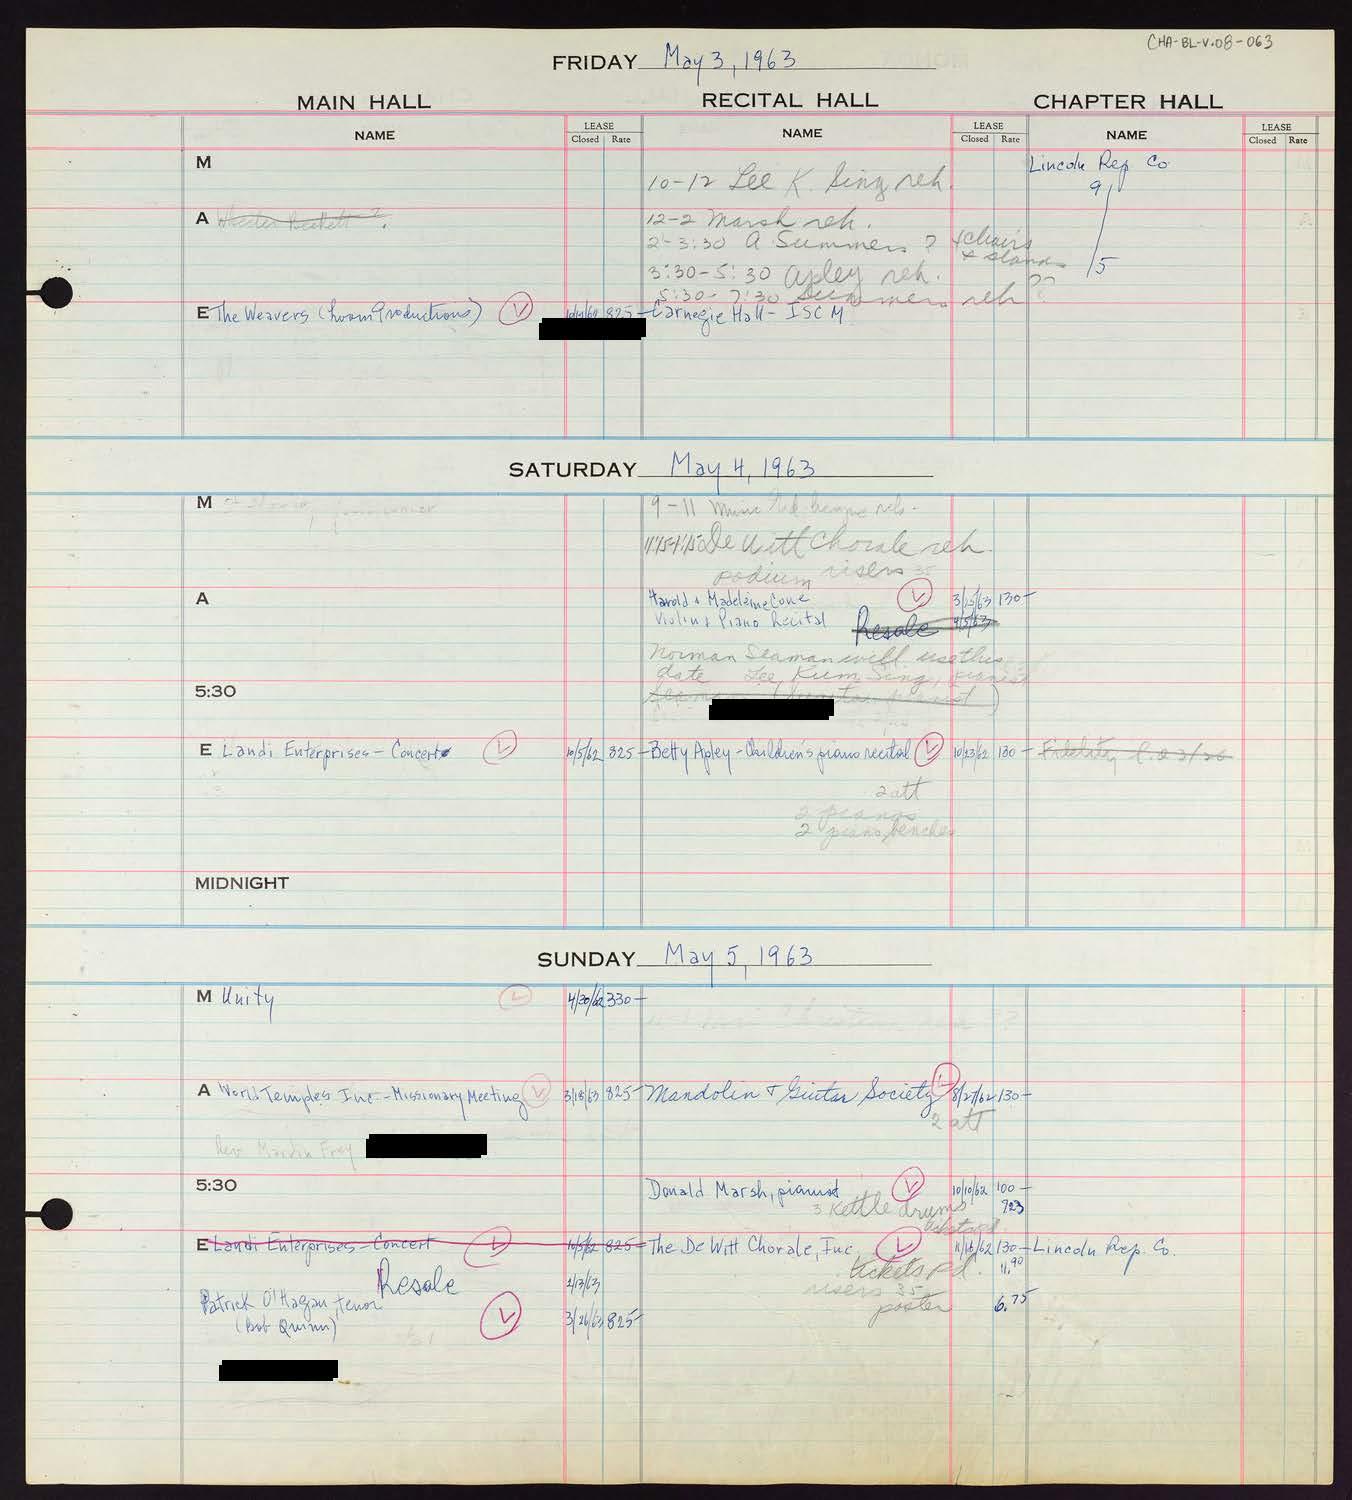 CHA-BL-V.08-063
FRIDAY May 3, 1963
MAIN HALL RECITAL HALL CHAPTER HALL
NAME LEASE Closed Rate NAME LEASE Closed Rate NAME LEASE Closed Rate
M
Lincoln Rep Co
10-12 Lee K. Sing reh.
9
A
12-2 Marsh reh.
2-3:30 A Summers ? chairs
+ stands
3:30-5:30 Apley reh.
5
??
5:30-7:30 Summers reh
E The Weavers (Loom Productions) 825- Carnegie Hall- ISCM
SATURDAY May 4, 1963
M
9-11 Music reh.
De Witt Chorale reh.
podium risers 35
A
Harold & Madeleine Cone 3/25/63 130-
Violin & Piano Recital Resale 4/5/63
Norman Seaman will use this
date Lee, Kum Sing, pianist
5:30
E Landi Enterprises- Concert 10/5/62 825- Betty Apley- Children's piano recital 10/23/62 130- Fidelity
2 att
2 pianos
2 piano benches
MIDNIGHT
SUNDAY May 5, 1963
M Unity 4/30/62 330-
A World Temples Inc- Missionary Meeting 3/18/63 825- Mandolin & Guitar Society 8/27/62 130-
2 att
Rev Mardin Frey
5:30
Donald Marsh, pianist 10/10/62 100-
3 Kettle drums 723
E Landi Enterprises- Concert 10/5/62 825- The De Witt Chorale, Inc. 11/18/62 130- Lincoln Rep. Co.
Resale tickets pd. 11.90
risers 35
Patrick O'Hagan, tenor
poster 6.75
(Bob Quinn) 3/26/63 825-